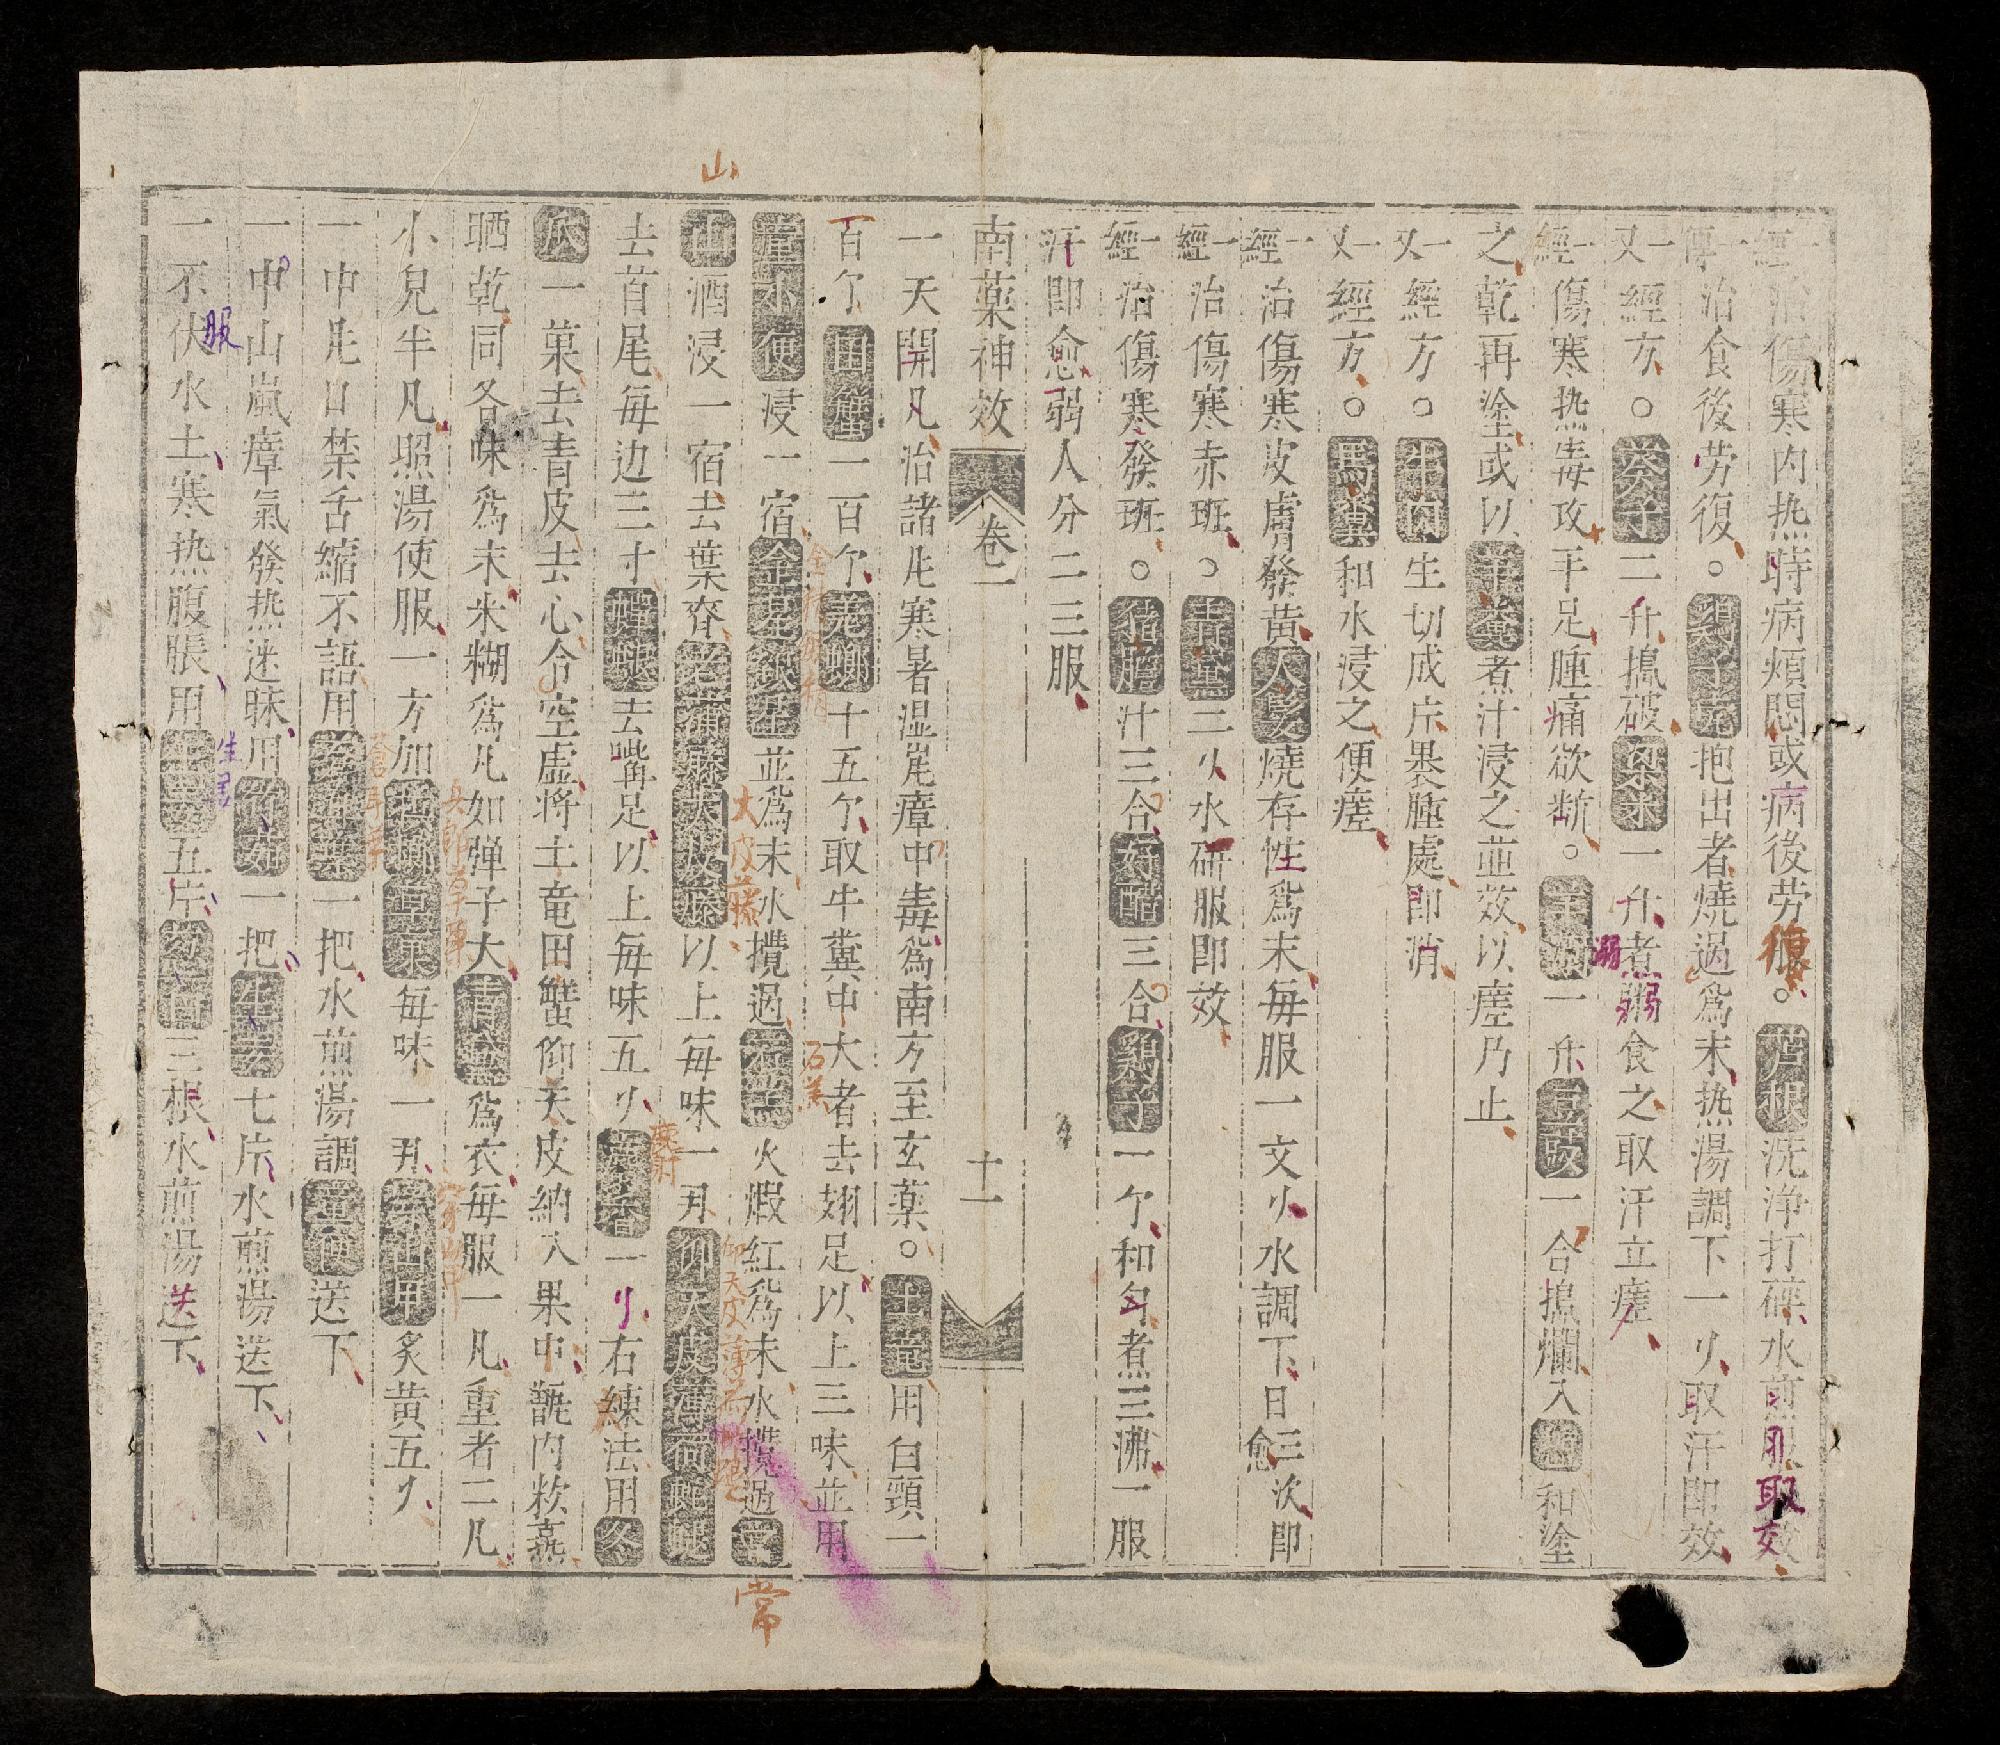 一經治傷寒内热時病煩悶或病後劳復。芦根洗浄打碎水煎服取效
一傳治食後劳復。鷄子壳抱出者燒過為末热湯調下一刂取汗即效
一又經方。柰子二升搗破梁米一升煮粥食之取汗立瘥
一經傷寒热毒攻手足腫痛欲斷。羊屎一升豆豉一合搗爛入和塗
之乾再塗或以羊糞煮汁浸之並效以瘥乃止
一又經方。牛肉生切成片褁腫處即消
一又經方。馬糞和水浸之便瘥
一經治傷寒皮膚發黄人髮燒存性為末每服一文刂水調下日三次即愈
一經治傷寒赤班。青黛二刂水研服即效
一經治傷寒發班。猪膽汁三合好醋三合鷄子一个和匀煮三沸一服
汗即愈弱人分二三服
南藥神效 卷一 十一
一天開凡治諸㽲寒暑湿嵐瘴中毒為南方至玄藥。土竜用白頸一
百个田蟹一百个羌螂十五个取牛糞中大者去翅足以上三味並用
童小便浸一宿全星並為末水攪過石羔火煆紅為末水攪過常
山酒浸一宿去葉者蒲大皮藤以上每味一刃仰天皮薄荷
去首尾每边三寸去嘴足以上每味五刂一刂右練法用冬
瓜一菓去青皮去心令空虚将土竜田蟹仰天皮納入果中甑内炊熹
晒乾同各味為末米糊為凡如弹子大青黛為衣每服一凡重者二凡
小兒半凡照湯使服一方加兵榔草果每味一刃穿山甲炙黄五刂
一中㽲口禁舌縮不語用蒼耳葉一把水煎湯調童便送下
一中山嵐瘴氣發热迷昧用竹茹一把生羌七片水煎湯送下
一不伏水土寒热腹脹用生羌五片葱白三根水煎湯送下
山
常
服
生羌
大皮藤
石羔